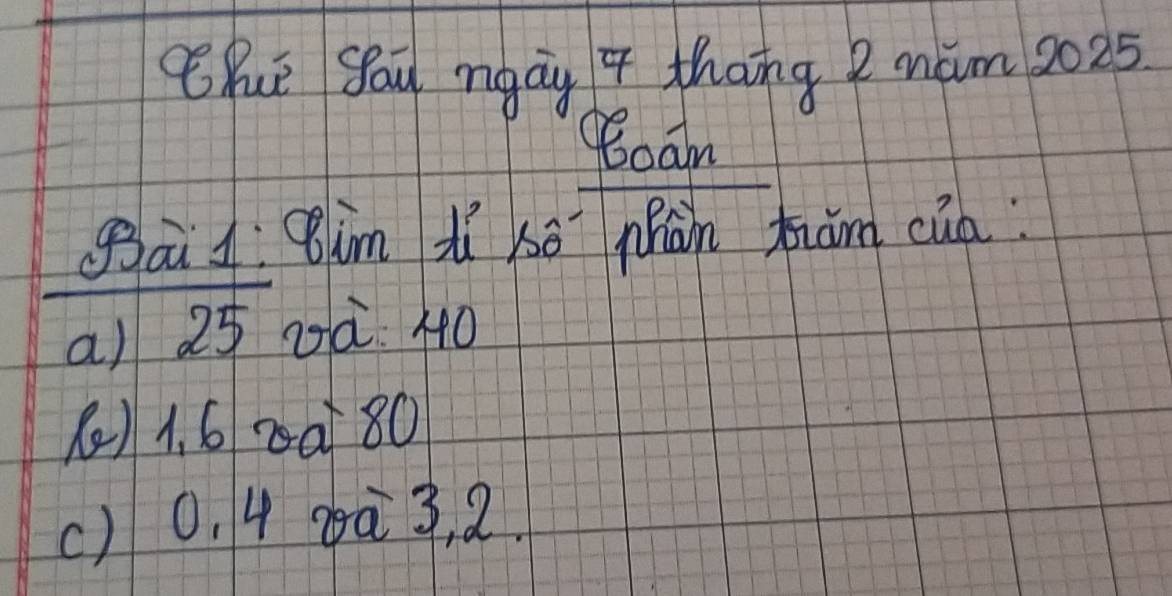 Thứ Sáu ngày 7 tháng 2 năm 2025.
Toán
Bài 1: Tìm tỉ số phần trăm của:
a) 25 và 40
b) 1,6 và 80
c) 0,4 và 3,2.